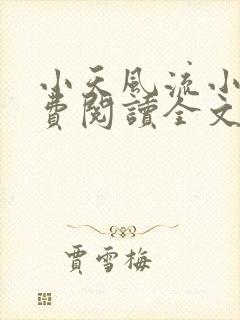 小天風流小
費閱讀全文
賈雪梅